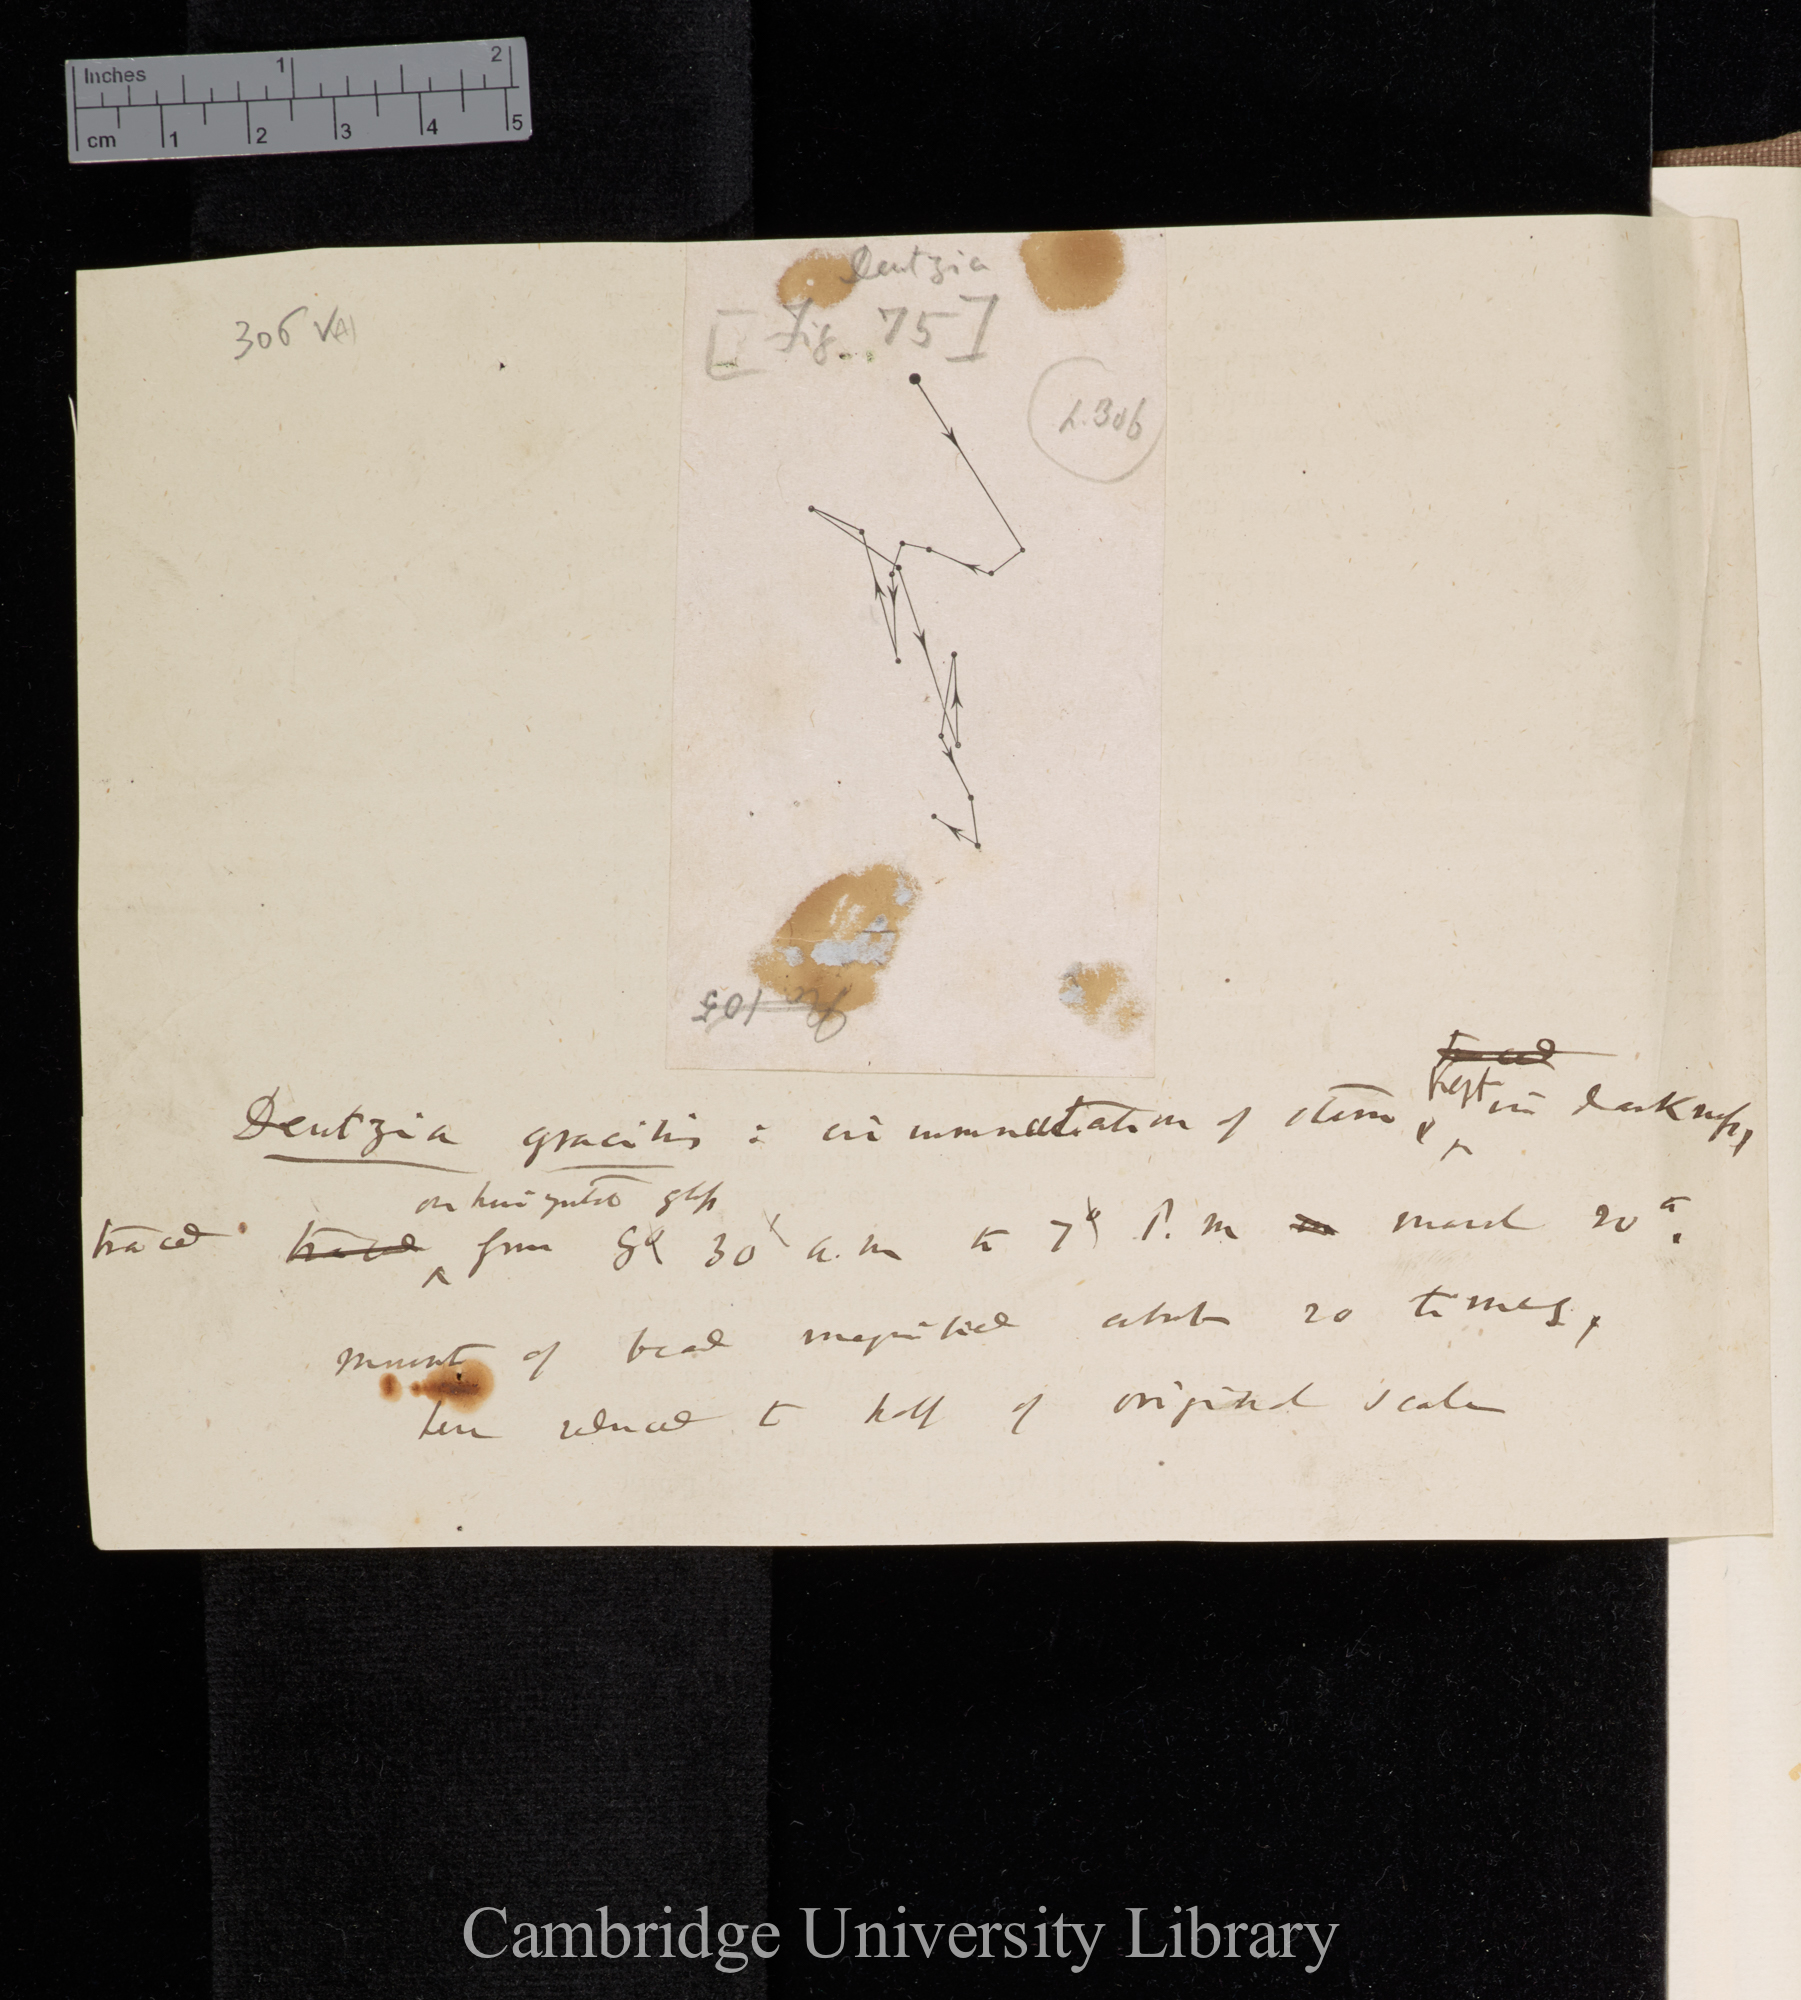 Inches 1 2
cm 1 2 3 4 5
Deutzia
306
[Fig. 75]
L. 306
Fig 105
traced
kept
Deutzia gracilis: circumnutation of stem, in darkness,
on horizontal glass
traced traced from 8 30 a.m to 7 P.m in March 20
movt of bead magnified about 20 times,
here reduced to half of original scale
Cambridge University Library